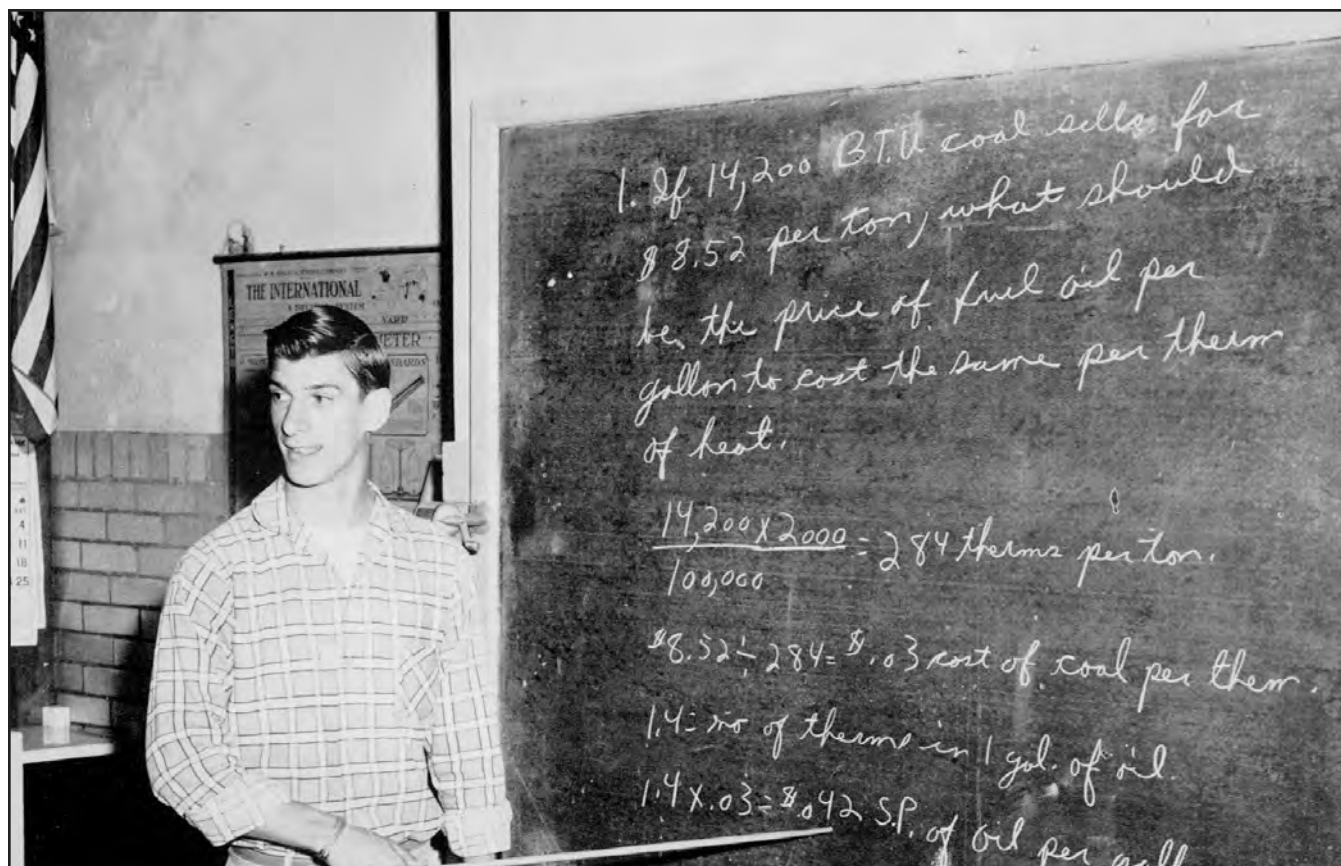 THE INTERNATIONAL
YARD
METER
STANDARDS
4
11
18
25
1. If 14,200 B.T.U coal sells for
$8.52 per ton, what should
be the price of fuel oil per
gallon to cost the same per therm
of heat.
14,200 x 2000
100,000
= 284 therms per ton.
$8.52 ÷ 284 = $.03 cost of coal per them.
1.4 = no of therms in 1 gal. of oil.
1.4 x .03 = $.042 S.P. of oil per gall